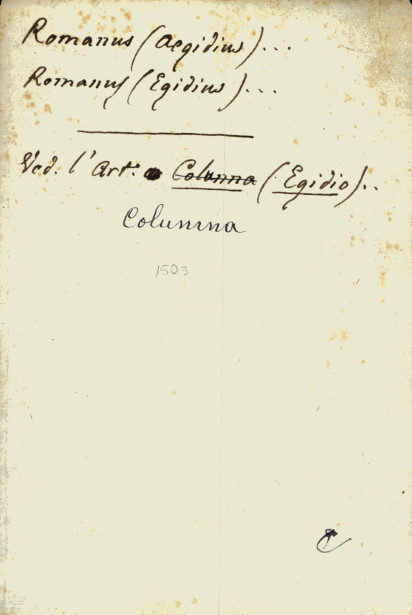 Romanus (Aegidius)...
Romanus (Egidius)...
Ved. l'Art: Colunna (Egidio)..
Columna
1503